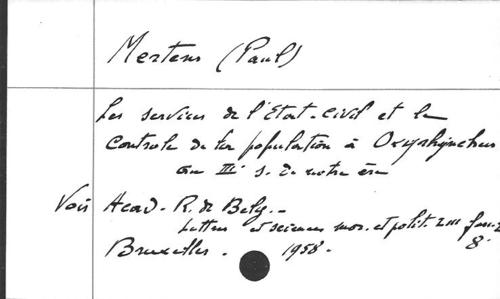 Mertens (Paul)
Les services de l'Etat-civil et le
Controle de la population à Oxyrhynchus
au IIIe s. de notre ère
Voir Acad. R. de Belg. -
Lettres et sciences mor. et polit. LIII fasc. 2
Bruxelles. - 1958. 8°